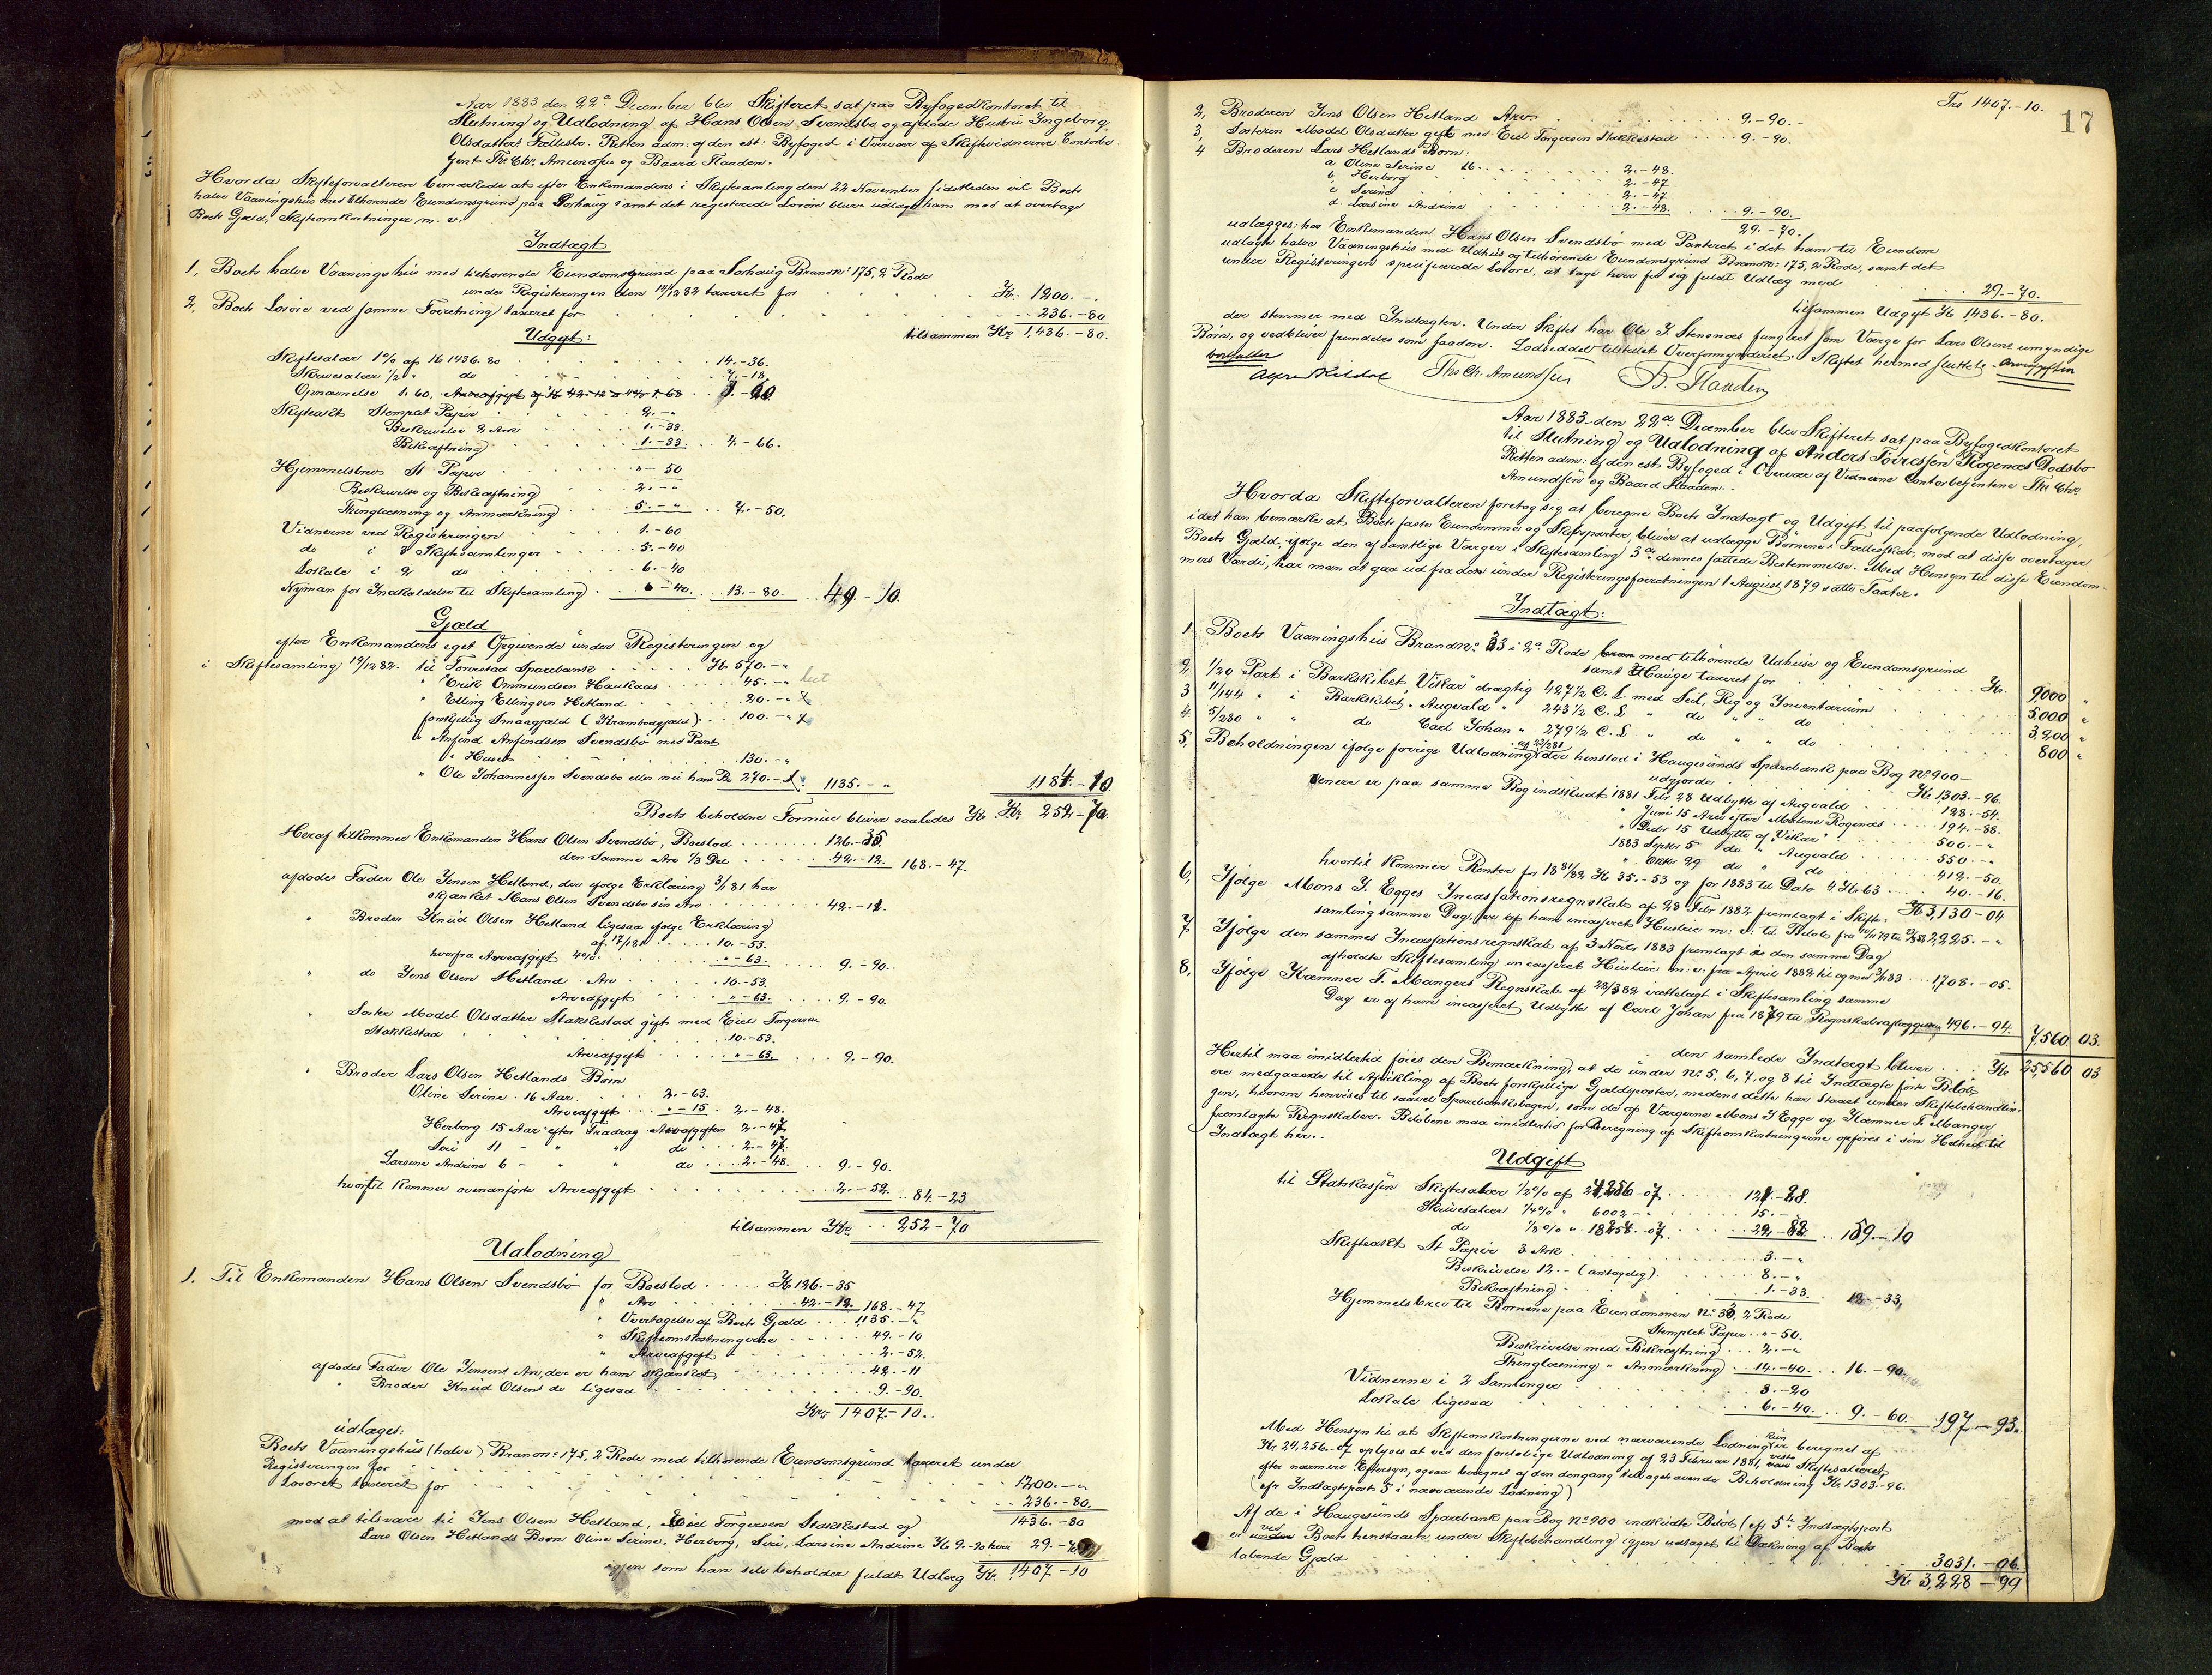 Aar 1883 den 22de December blev Skifteret sat paa Byfogedkontoret til
Slutning og Udlodning af Hans Olsen Svendsbø og afdøde Hustru Ingeborg
Olsdatters Fællesbo. Retten adm: af den const: Byfoged i Overvær af Skiftevidnerne Contorbe-
tjent Ths. Chr. Amundsen og Baard Flaaden.
Hvorda Skifteforvalteren bemærkede at efter Enkemandens i Skiftesamling den 22 November sidstleden vil Boets
halve Vaaningshus med tilhørende Eiendomsgrund paa Sørhaug samt det registrerede Løsøre blive udlagt ham mod at overtage
Boets Gjæld, Skifteomkostninger m. v.
Indtægt
1, Boets halve Vaaningshus med tilhørende Eiendomsgrund paa Sørhaug Brandn: 175, 2 Rode
under Registeringen den 12/12 82 taxeret for Kr. 1200.-.
2, Boets Løsøre ved samme Forretning taxeret for 236.-80
tilsammen Kr 1,436.-80.
Udgift:
Skiftesalær 1% af Kr 1436. 80 14.-36.
Skrivesalær 1/2 " do 7.-18.
Opnævnelse 1. 60, Arveafgift af Kr 42-12 a 4% 1.68 1.-60
Skifteakt Stemplet Papir 2.-"
Beskrivelse 2 Ark 1.-33.
Bekræftning 1.-33 4.-66.
Hjemmelsbrev St Papir "-50
Beskrivelse og Bekræftning 2.-"
Thinglæsning og Anmærkning 5.-" 7.-50.
Vidnerne ved Registeringen 1.-60
do i 3 Skiftesamlinger 5.-40
Lokale i 2 do 6.-40
Nyman for Indkaldelse til Skiftesamling "-40. 13.-80. 49.-10.
Gjæld
efter Enkemandens eget Opgivende under Registeringen og
i Skiftesamling 12/12 82. til Torvestad Sparebank Kr. 570.-"
" Erik Ommundsen Haukaas 45.-"
" Elling Ellingsen Hetland 20.-"
forskjellig Smaagjæld (Krambodgjæld) 100.-"
" Anfind Anfindsen Svendsbø med Pant
i Huset 130.-"
" Ole Johannessen Svendsbø eller nu hans Bo 270.- 1135.-" 1184.-10
Boets beholdne Formue bliver saaledes Kr. Kr. 252-70.
Heraf tilkommer Enkemanden Hans Olsen Svendsbø, Boeslod 126.-35
den samme Arv 1/3 Del 42.-12. 168.-47.
afdødes Fader Ole Jensen Hetland, der ifølge Erklæring 3/1 81 har
skjænket Hans Olsen Svendsbø sin Arv 42.-11.
" Broder Knud Olsen Hetland ligesaa ifølge Erklæring
af 17/1 81 10.-53.
hvorfra Arveafgift 4% "-63. 9.-90.
" do Jens Olsen Hetland Arv 10-53.
Arveafgift "-63. 9.-90.
" Søster Madel Olsdatter Stakkestad gift med Eiel Torgersen
Stakkestad 10.-53.
Arveafgift "-63. 9.-90.
" Broder Lars Olsen Hetlands Børn
Oline Serine 16 Aar 2.-63.
Arveafgift "-15. 2.-48.
Herborg 15 Aar efter Fradrag Arveafgiften 2.-47.
Siri 11 - " " do 2.-47.
Larsine Andrine 6 - " " do 2.-48. 9.-90.
hvortil kommer ovenanførte Arveafgift 2.-52. 84.-23
tilsammen Kr. 252-70
Udlodning
1. Til Enkemanden Hans Olsen Svendsbø for Boeslod Kr 126.-35
" Arv 42.-12. 168.-47
" Overtagelse af Boets Gjæld 1135.-"
" Skifteomkostningerne 49.-10
" Arveafgift 2.-52.
afdødes Fader Ole Jensens Arv, der er ham skjænket 42-11
" Broder Knud Olsens do ligesaa 9.-90.
Kr. 1407.-10.
udlæges:
Boets Vaaningshus (halve) Brandn: 175, 2 Rode med tilhørende Eiendomsgrund taxeret under
Registeringen for 1200.-"
Løsøret taxeret for 236.-80.
1436.-80
mod at tilsvare til Jens Olsen Hetland, Eiel Torgersen Stakkestad og
Lars Olsen Hetlands Børn Oline Serine, Herborg, Siri, Larsine Andrine Kr 9.-90 hver 29.-70
igjen som han selv beholder fuldt Udlæg Kr. 1407-10
Trs 1407.-10.
17
2, Broderen Jens Olsen Hetland Arv 9.-90.-
3, Søsteren Madel Olsdatter gift med Eiel Torgersen Stakkestad 9.-90.
4 Broderen Lars Hetlands Børn:
a Oline Serine 16 2.-48.
b Herborg 2.-47
c Serine 2.-47
d. Larsine Andrine 2.-48. 9.-90.
29.-70.
udlægges hos Enkemanden Hans Olsen Svendsbø med Panteret i det ham til Eiendom
udlagte halve Vaaningshus med Udhus og tilhørende Eiendomsgrund Brandn: 175, 2 Rode, samt det
under Registeringen specificerede Løsøre, at tage hver for sig fuldt Udlæg med 29.-70.
tilsammen Udgift Kr 1436.-80.
der stemmer med Indtægten. Under Skiftet har Ole J. Stensnæs fungeret som Værge for Lars Olsens umyndige
Børn, og vedbliver fremdeles som saadan. Lodseddel tilstillet Overformynderiet. Skiftet hermed sluttet. Arveafgiften
bortfalder
Ths Ch. Amundsen B. Flaaden
Aar 1883 den 22de December blev Skifteret sat paa Byfogedkontoret
til Slutning og Udlodning af Anders Toresen Røgenæs Dødsbo
Retten adm: af den const Byfoged i Overvær af Vidnerne Contorbetjentene Ths. Chr.
Amundsen og Baard Flaaden.
Hvorda Skifteforvalteren foretog sig at beregne Boets Indtægt og Udgift til paafølgende Udlodning,
idet han bemærker at Boets faste Eiendomme og Skibsparter, bliver at udlægge Børnene i Fællesskab, mod at disse overtager
Boets Gjæld, ifølge den af samtlige Værger i Skiftesamling 3de dennes fattede Bestemmelse. Med Hensyn til disse Eiendom-
mers Værdi, har man at gaa ud fra den under Registeringsforretningen 1 August 1879 satte Taxter.
Indtægt:
1. Boets Vaaningshus Brandn: 33 i 2de Rode med tilhørende Udhuse og Eiendomsgrund
samt Hauge taxeret for Kr. 9000 "
2 1/20 Part i Barkskibet "Vikar" drægtig 427 1/2 C. L. med Seil, Rig og Inventarium 5,000 "
3 11/144 " i Barkskibet "Augvald" 243 1/2 C. L " do " " do 3,200 "
4. 5/280 " " do Carl Johan " 279 1/2 C. L " do " " do 800 "
5, Beholdningen ifølge forrige Udlodning af 23/2 81 der henstod i Haugesunds Sparebank paa Bog No 900-
udgjorde Kr 1303.-96.
Senere er paa samme Bog indskudt 1881 Febr 28 Udbytte af Augvald 128.-54.
" Juni 15 Arv efter Malene Røgenæs 194.-88.
" Decbr 15 Udbytte af "Vikar" 500.-"
1883 Septbr 5 do " Augvald 550.-"
" Oktbr 29 do " do 412.-50.
hvortil kommer Renter for 1881/82 Kr 35.-53 og for 1883 til Dato 4 Kr 63 40.-16.
Kr 3,130-04
6, Ifølge Mons J. Egges Incassationsregnskab af 28 Febr 1882 fremlagt i Skifte-
samling samme Dag, er af ham incasseret Husleie m: v: til Beløb fra 10/11 79 til 2,225.-"
7 Ifølge den sammes Incassationsregnskab af 3 Novbr 1883 fremlagt i den samme Dag
afholdte Skiftesamling incasseret Husleie m: v: fra April 1882 til og med 3/11 83 1,708.-05.
8, Ifølge Kæmner F. Mangers Regnskab af 28/3 82 irettelagt i Skiftesamling samme
Dag er af ham incasseret Udbytte af Carl Johan fra 1879 til Regnskabsaflæggelsen 496.-94. 7,560 03.
den samlede Indtægt bliver Kr 25,560 03
Hertil maa imidlertid føies den Bemærkning, at de under No 5, 6, 7, og 8 til Indtægt førte Beløb,
ere medgaaede til Afvikling af Boets forskjellige Gjældsposter, medens dette har staaet under Skiftebehandlin-
gen, hvorom henvises til saavel Sparebanksbogen, som de af Værgerne Mons J Egge og Kæmner F. Manger
fremlagte Regnskaber. Beløbene maa imidlertid for Beregning af Skifteomkostningerne opføres i sin Helhed til
Indtægt her.
Udgift
til Statskassen Skiftesalær 1/2% af 24,256-07 121.-28.
Skrivesalær 1/4% " 6002-" 15.-"
do 1/8% " 18254.-07. 22.-82. 159.-10
Skifteakt St Papir 3 Ark 3.-"
Beskrivelse 12.- (antagelig) 8.-"
Bekræftning 1.-33. 12.-33,
Hjemmelsbrev til Børnene paa Eiendommen No 33, 2 Rode
Stemplet Papir "-50.
Beskrivelse med Bekræftning 2.-"
Thinglæsning " Anmærkning 14.-40. 16.-90.
Vidnerne i 2 Samlinger 3.-20
Lokale ligesaa 6.-40. 9.-60. 197-93.
Med Hensyn til at Skifteomkostningerne ved nærværende Lodning kun er beregnet af
Kr 24,256.-07 oplyses at ved den foreløbige Udlodning af 23 Februar 1881, Skiftesalæret
efter nærmere Eftersyn, ogsaa beregnet af den dengang tilbageværende Beholdning Kr. 1303.-96.
(cfr Indtægtspost 5 i nærværende Lodning)
Af de i Haugesunds Sparebank paa Bog No 900 indskudte Beløb (cfr 5te Indtægtspost
er ved Boets henstaaen under Skiftebehandling igjen udtaget til Dækning af Boets
løbende Gjæld 3031.-06.
Kr 3,228-99